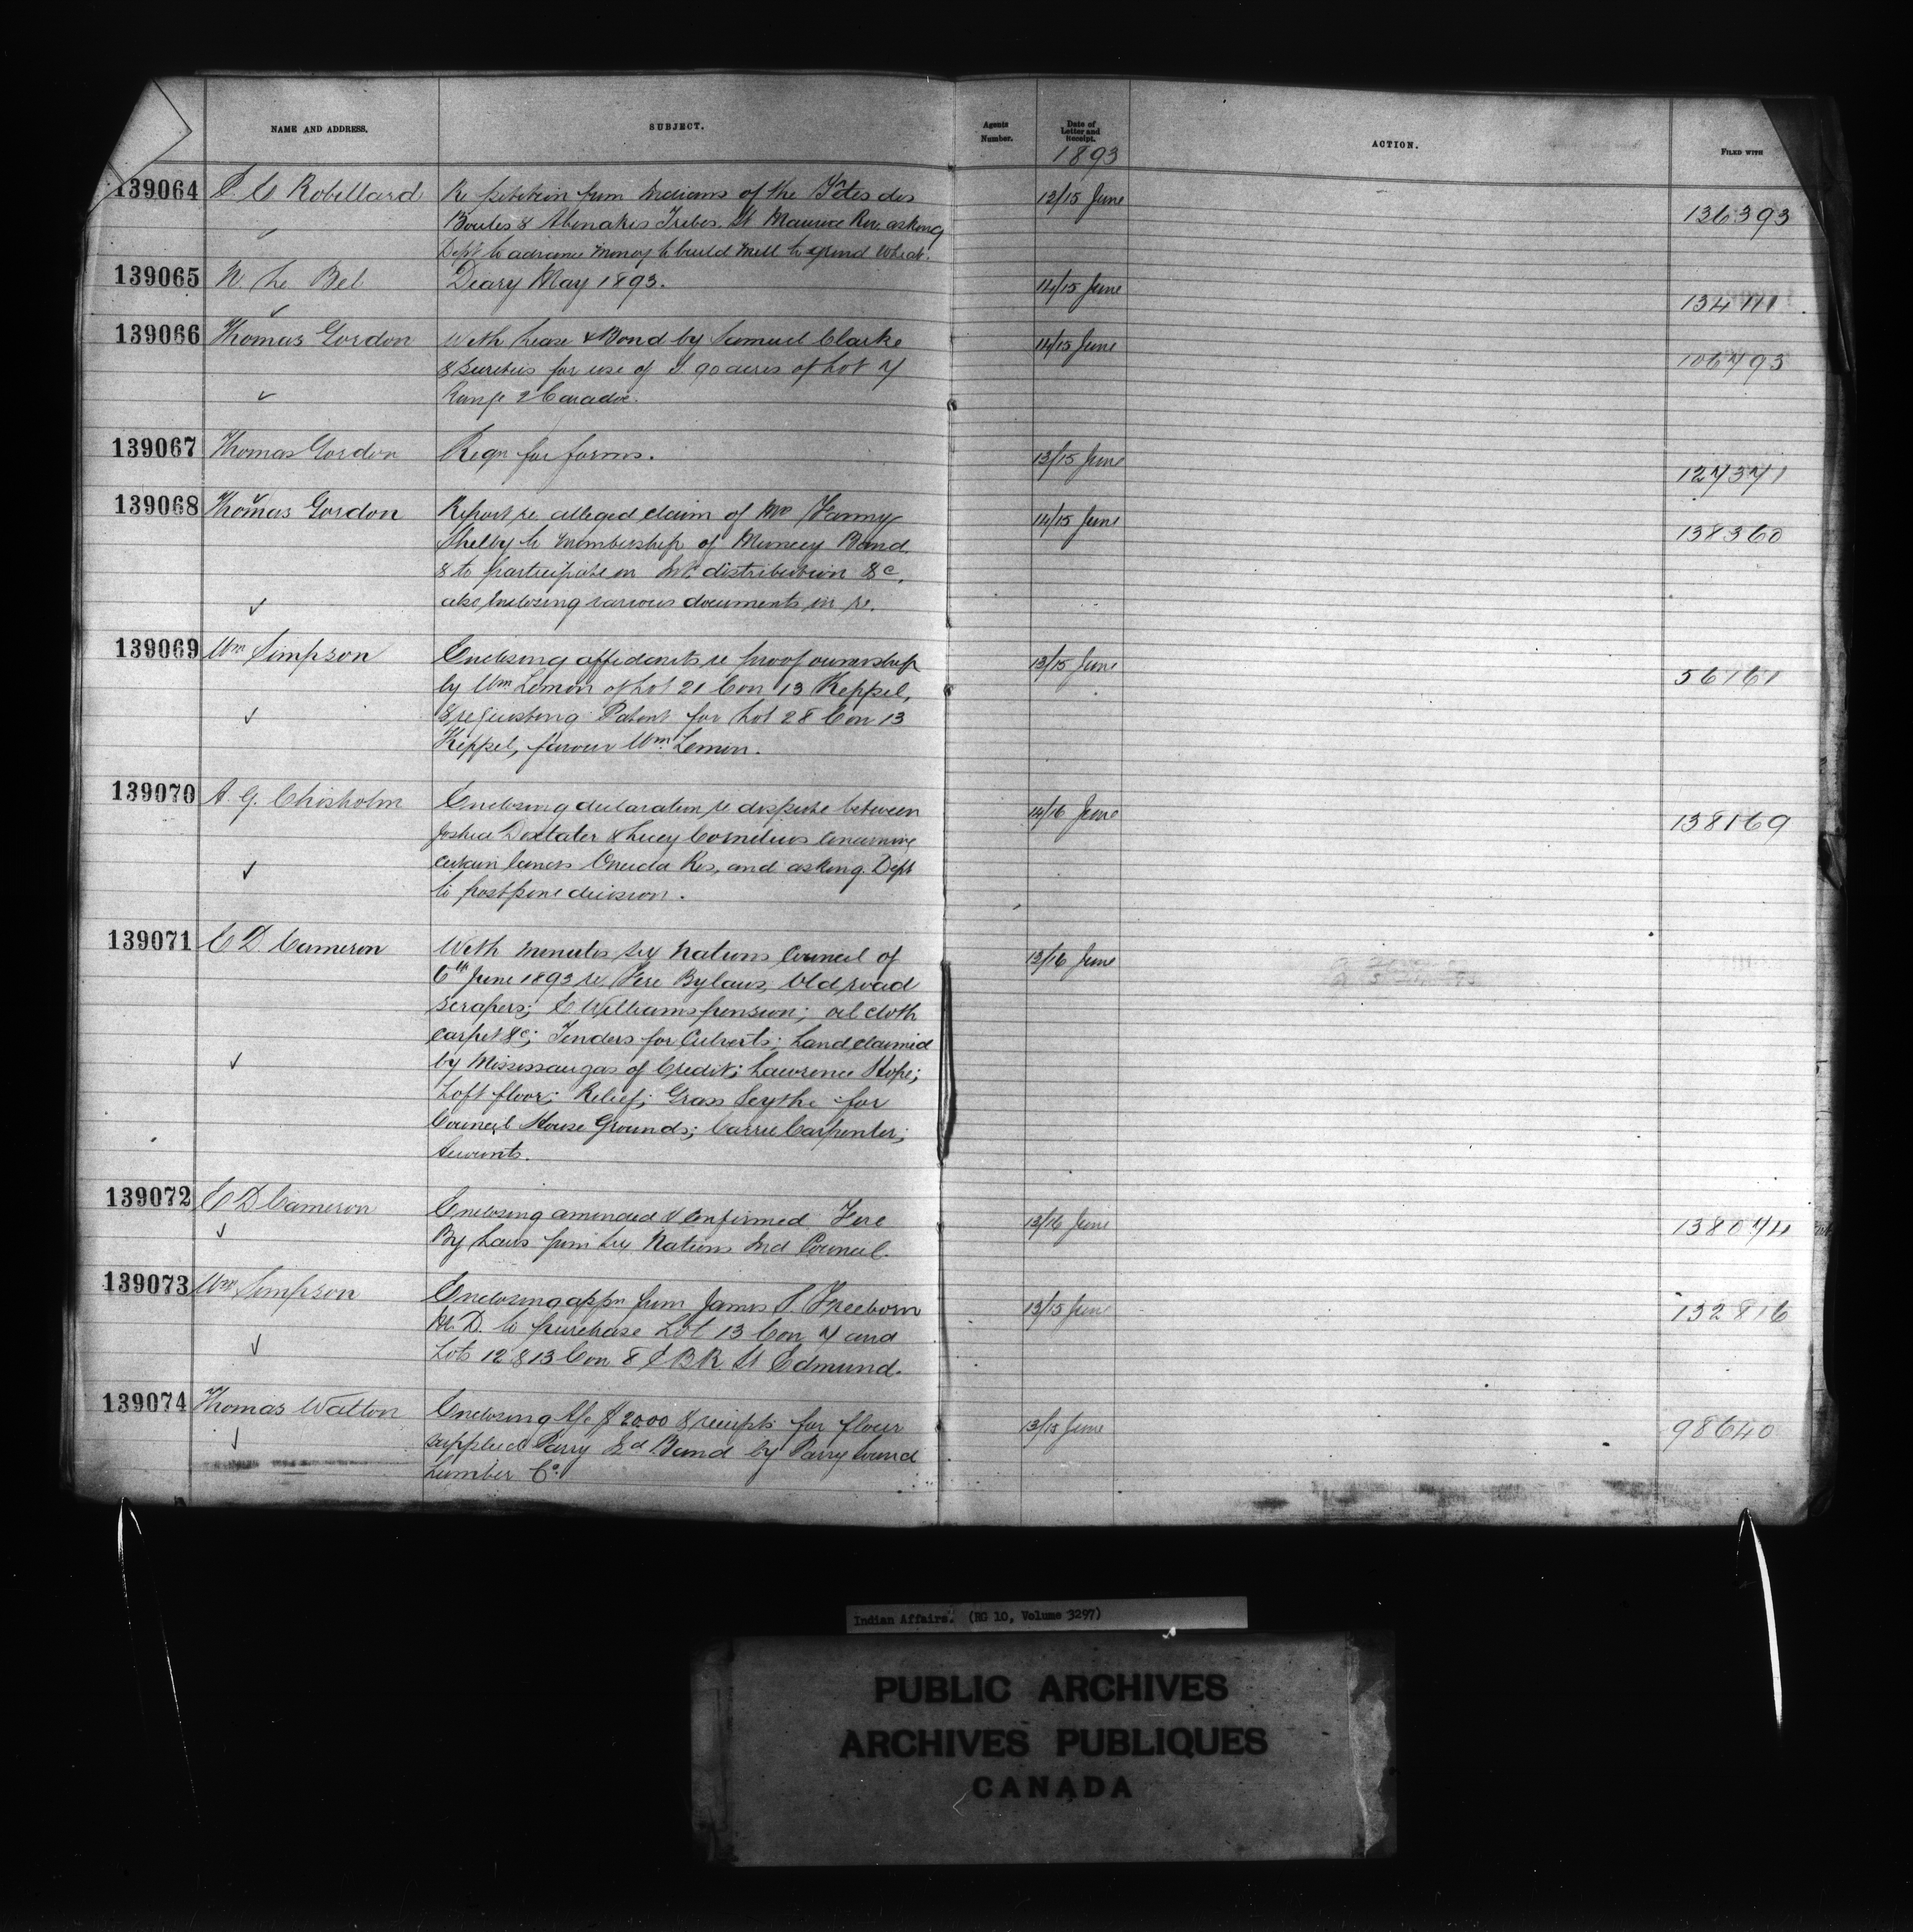 NAME AND ADDRESS. SUBJECT. Agents Number. Date of Letter and Receipt. ACTION. FILED WITH
1893
139064 Robillard Re petition from Indians of the Têtes des 13/15 June 136393
Boules & Abenakis Tribes, St Maurice Riv. asking
Dept to advance money to build mill to grind wheat.
139065 N. Le Bel Diary May 1893. 14/15 June
139066 Thomas Gordon With Lease & Bond by Samuel Clarke 14/15 June 106793
& sureties for use of S. 90 acres of Lot 7
Range 2 Caradoc.
139067 Thomas Gordon Reqn for forms. 13/15 June 127371
139068 Thomas Gordon Report re alleged claim of Mrs Fanny 14/15 June 138360
Shelby to membership of Muncey Band,
& to participate in Int distribution &c,
also enclosing various documents in re.
139069 Wm Simpson Enclosing affidavits re proof ownership 13/15 June 56161
by Wm Lemon of Lot 21 Con 13 Keppel,
& requesting Patent for Lot 28 Con 13
Keppel, favour Wm Lemon.
139070 A. G. Chisholm Enclosing declaration re dispute between 14/16 June 138169
Joshua Doxtater & Lucy Cornelius concerning
certain lands Oneida Res, and asking Dept
to postpone decision.
139071 E D. Cameron With minutes Six Nations Council of 13/16 June
6th June 1893 re Fire Bylaws, Old road
scrapers; Williams pension; oil cloth
carpet &c; Tenders for Culverts; Land claimed
by Mississaugas of Credit; Lawrence Hope;
Loft floor; Relief; Grass Scythe for
Council House Grounds; Carrie Carpenter;
Accounts.
139072 E D Cameron Enclosing amended & confirmed Fire 13/16 June 138074
By Laws from Six Nations Ind Council.
139073 Wm Simpson Enclosing appn from James S. Freeborn 13/15 June 132816
M. D. to purchase Lot 13 Con 7 and
Lots 12 & 13 Con 8 E B R St Edmund.
139074 Thomas Walton Enclosing A/c $20.00 & receipts for flour 13/15 June 98640
supplied Parry Sd Band by Parry Sound
Lumber Co.
Indian Affairs. (RG 10, Volume 3297)
PUBLIC ARCHIVES
ARCHIVES PUBLIQUES
CANADA